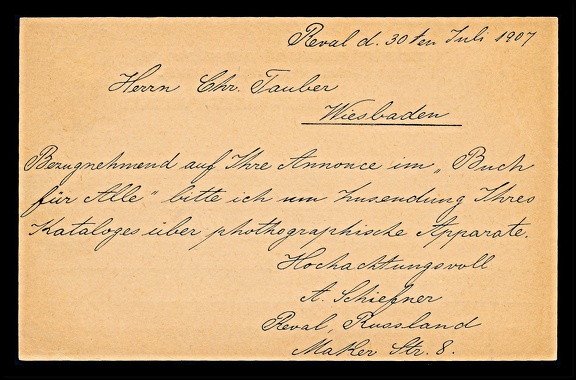 Reval d. 30ten Juli 1907
Herrn Chr. Tauber
Wiesbaden
Bezugnehmend auf Ihre Annonce im „Buch
für Alle“ bitte ich um Zusendung Ihres
Kataloges über phothographische Apparate.
Hochachtungsvoll
A. Schiefner
Reval, Russland
Maker Str. 8.